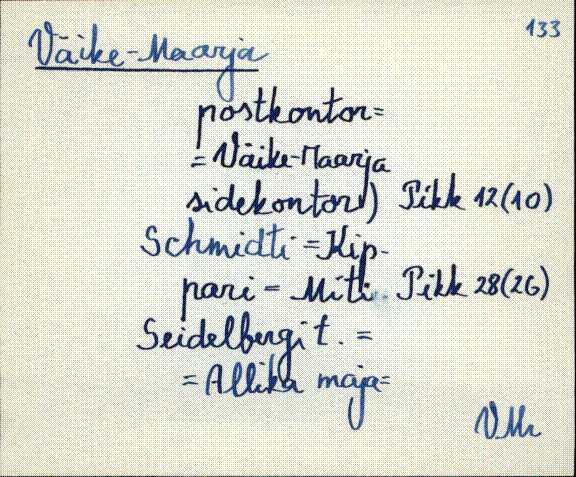 133
Väike-Maarja
postkontor=
=Väike-Maarja
sidekontor) Pikk 12(10)
Schmidti=Kip-
pari= Miti. Pikk 28(26)
Seidelbergi t. =
=Allika maja=
VMr